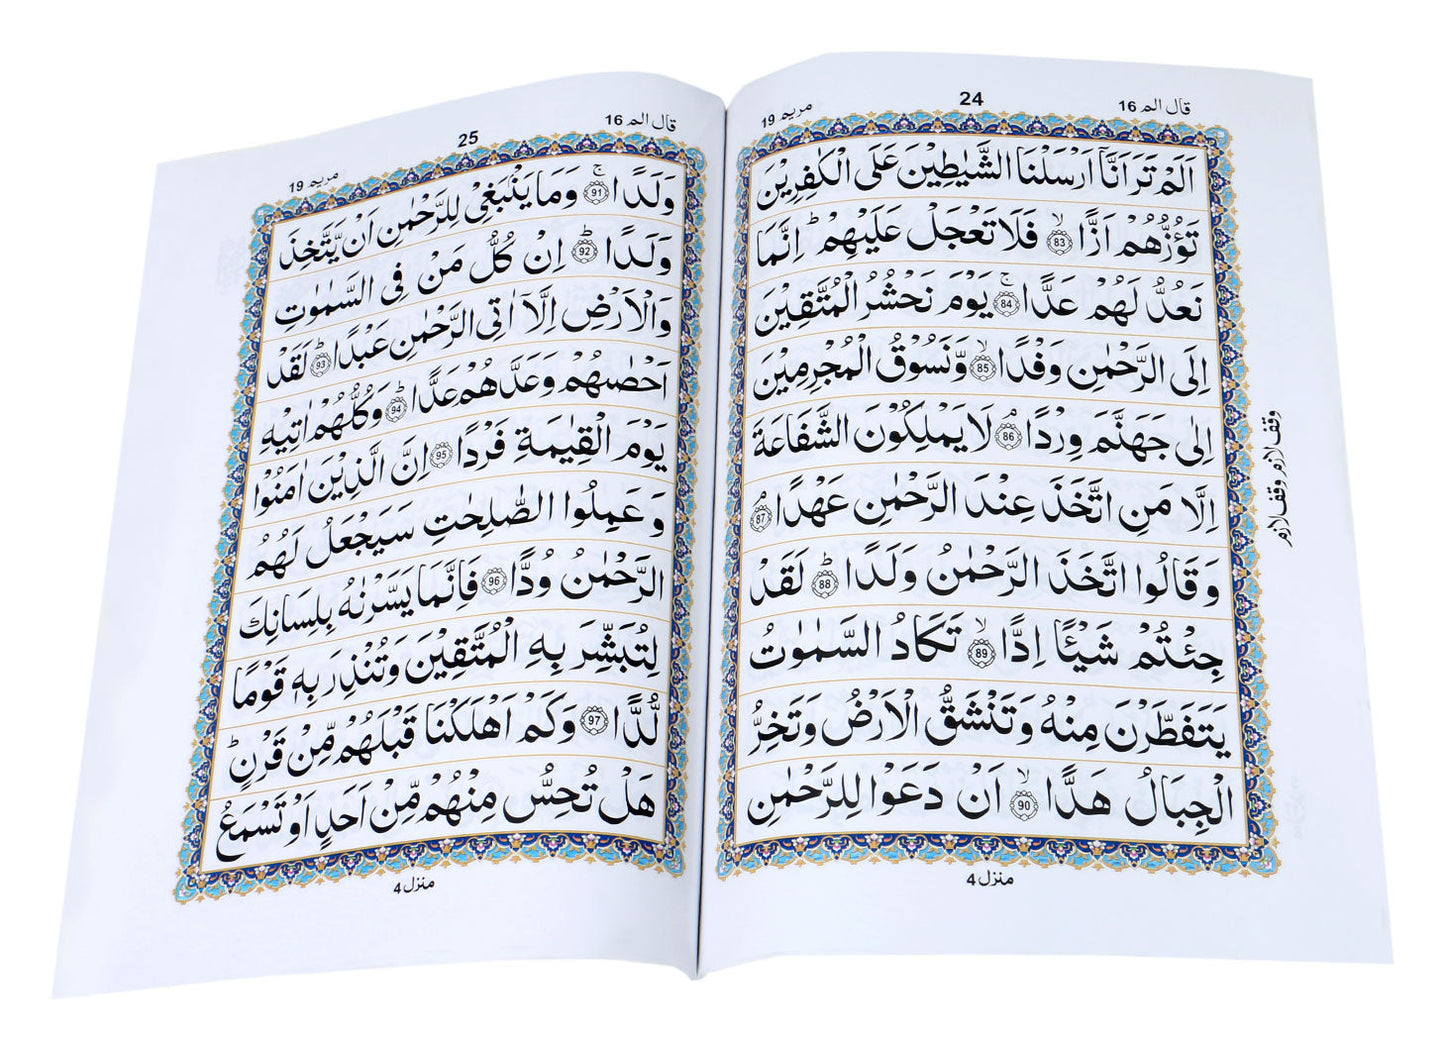 مريم 19
24
قال الم 16
اَلَمْ تَرَ اَنَّاۤ اَرْسَلْنَا الشَّيٰطِيْنَ عَلَى الْكٰفِرِيْنَ
تَؤُزُّهُمْ اَزًّا ۙ83 فَلَا تَعْجَلْ عَلَيْهِمْ ؕ اِنَّمَا
نَعُدُّ لَهُمْ عَدًّا ۚ84 يَوْمَ نَحْشُرُ الْمُتَّقِيْنَ
اِلَى الرَّحْمٰنِ وَفْدًا ۙ85 وَّنَسُوْقُ الْمُجْرِمِيْنَ
اِلٰى جَهَنَّمَ وِرْدًا ۘ86 لَا يَمْلِكُوْنَ الشَّفَاعَةَ
اِلَّا مَنِ اتَّخَذَ عِنْدَ الرَّحْمٰنِ عَهْدًا ۘ87
وَقَالُوا اتَّخَذَ الرَّحْمٰنُ وَلَدًا ؕ88 لَقَدْ
جِئْتُمْ شَيْـًٔا اِدًّا ۙ89 تَكَادُ السَّمٰوٰتُ
يَتَفَطَّرْنَ مِنْهُ وَتَنْشَقُّ الْاَرْضُ وَتَخِرُّ
الْجِبَالُ هَدًّا ۙ90 اَنْ دَعَوْا لِلرَّحْمٰنِ
منزل 4
وقف لازم وقف لازم
مريم 19
25
قال الم 16
وَلَدًا ۚ91 وَمَا يَنْۢبَغِيْ لِلرَّحْمٰنِ اَنْ يَّتَّخِذَ
وَلَدًا ؕ92 اِنْ كُلُّ مَنْ فِى السَّمٰوٰتِ
وَالْاَرْضِ اِلَّاۤ اٰتِى الرَّحْمٰنِ عَبْدًا ؕ93 لَقَدْ
اَحْصٰىهُمْ وَعَدَّهُمْ عَدًّا ؕ94 وَكُلُّهُمْ اٰتِيْهِ
يَوْمَ الْقِيٰمَةِ فَرْدًا 95 اِنَّ الَّذِيْنَ اٰمَنُوْا
وَعَمِلُوا الصّٰلِحٰتِ سَيَجْعَلُ لَهُمُ
الرَّحْمٰنُ وُدًّا 96 فَاِنَّمَا يَسَّرْنٰهُ بِلِسَانِكَ
لِتُبَشِّرَ بِهِ الْمُتَّقِيْنَ وَتُنْذِرَ بِهٖ قَوْمًا
لُّدًّا 97 وَكَمْ اَهْلَكْنَا قَبْلَهُمْ مِّنْ قَرْنٍ ؕ
هَلْ تُحِسُّ مِنْهُمْ مِّنْ اَحَدٍ اَوْ تَسْمَعُ
منزل 4